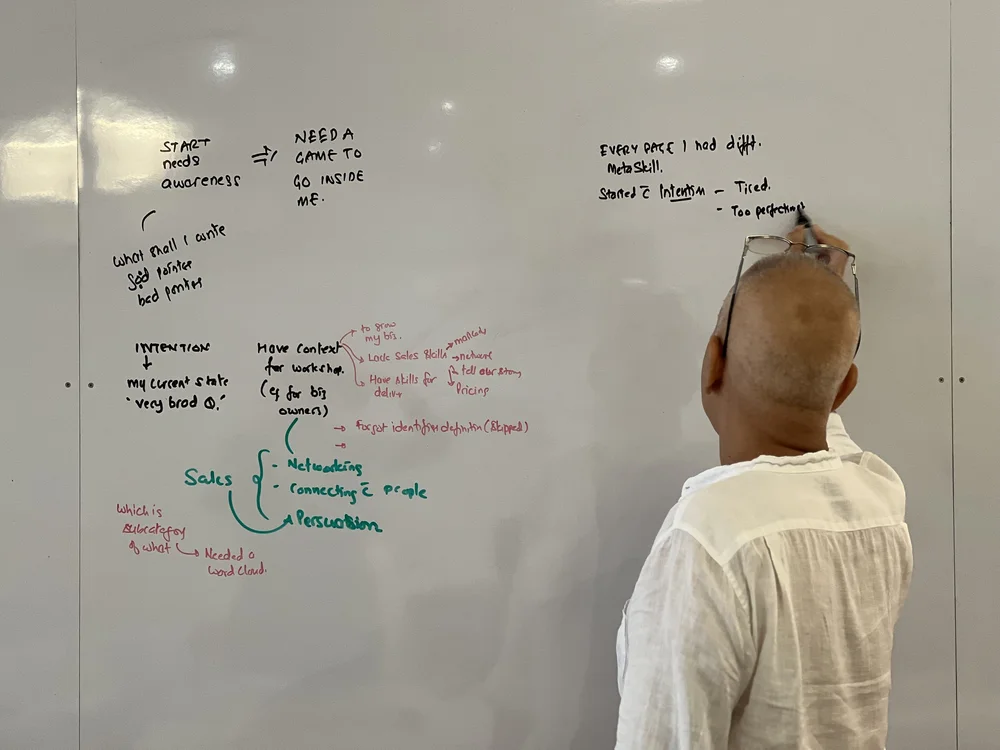 START
needs
awareness
NEED A
GAME TO
GO INSIDE
ME.
What shall I write
bad pointer
INTENTION
my current state
"very broad
Have Context
for workshop.
(eg for biz
owners)
to grow
my biz.
Lack Sales Skills
Have skills for
network
tell our story
Pricing
Forgot identifying definition (Skipped)
Sales
- Networking
- Connecting c̄ people
Persuasion
Which is
subcategory
of what
Needed a
Word Cloud.
EVERY PAGE I had difft.
MetaSkill.
Started c̄ Intention - Tired.
- Too perfectionist